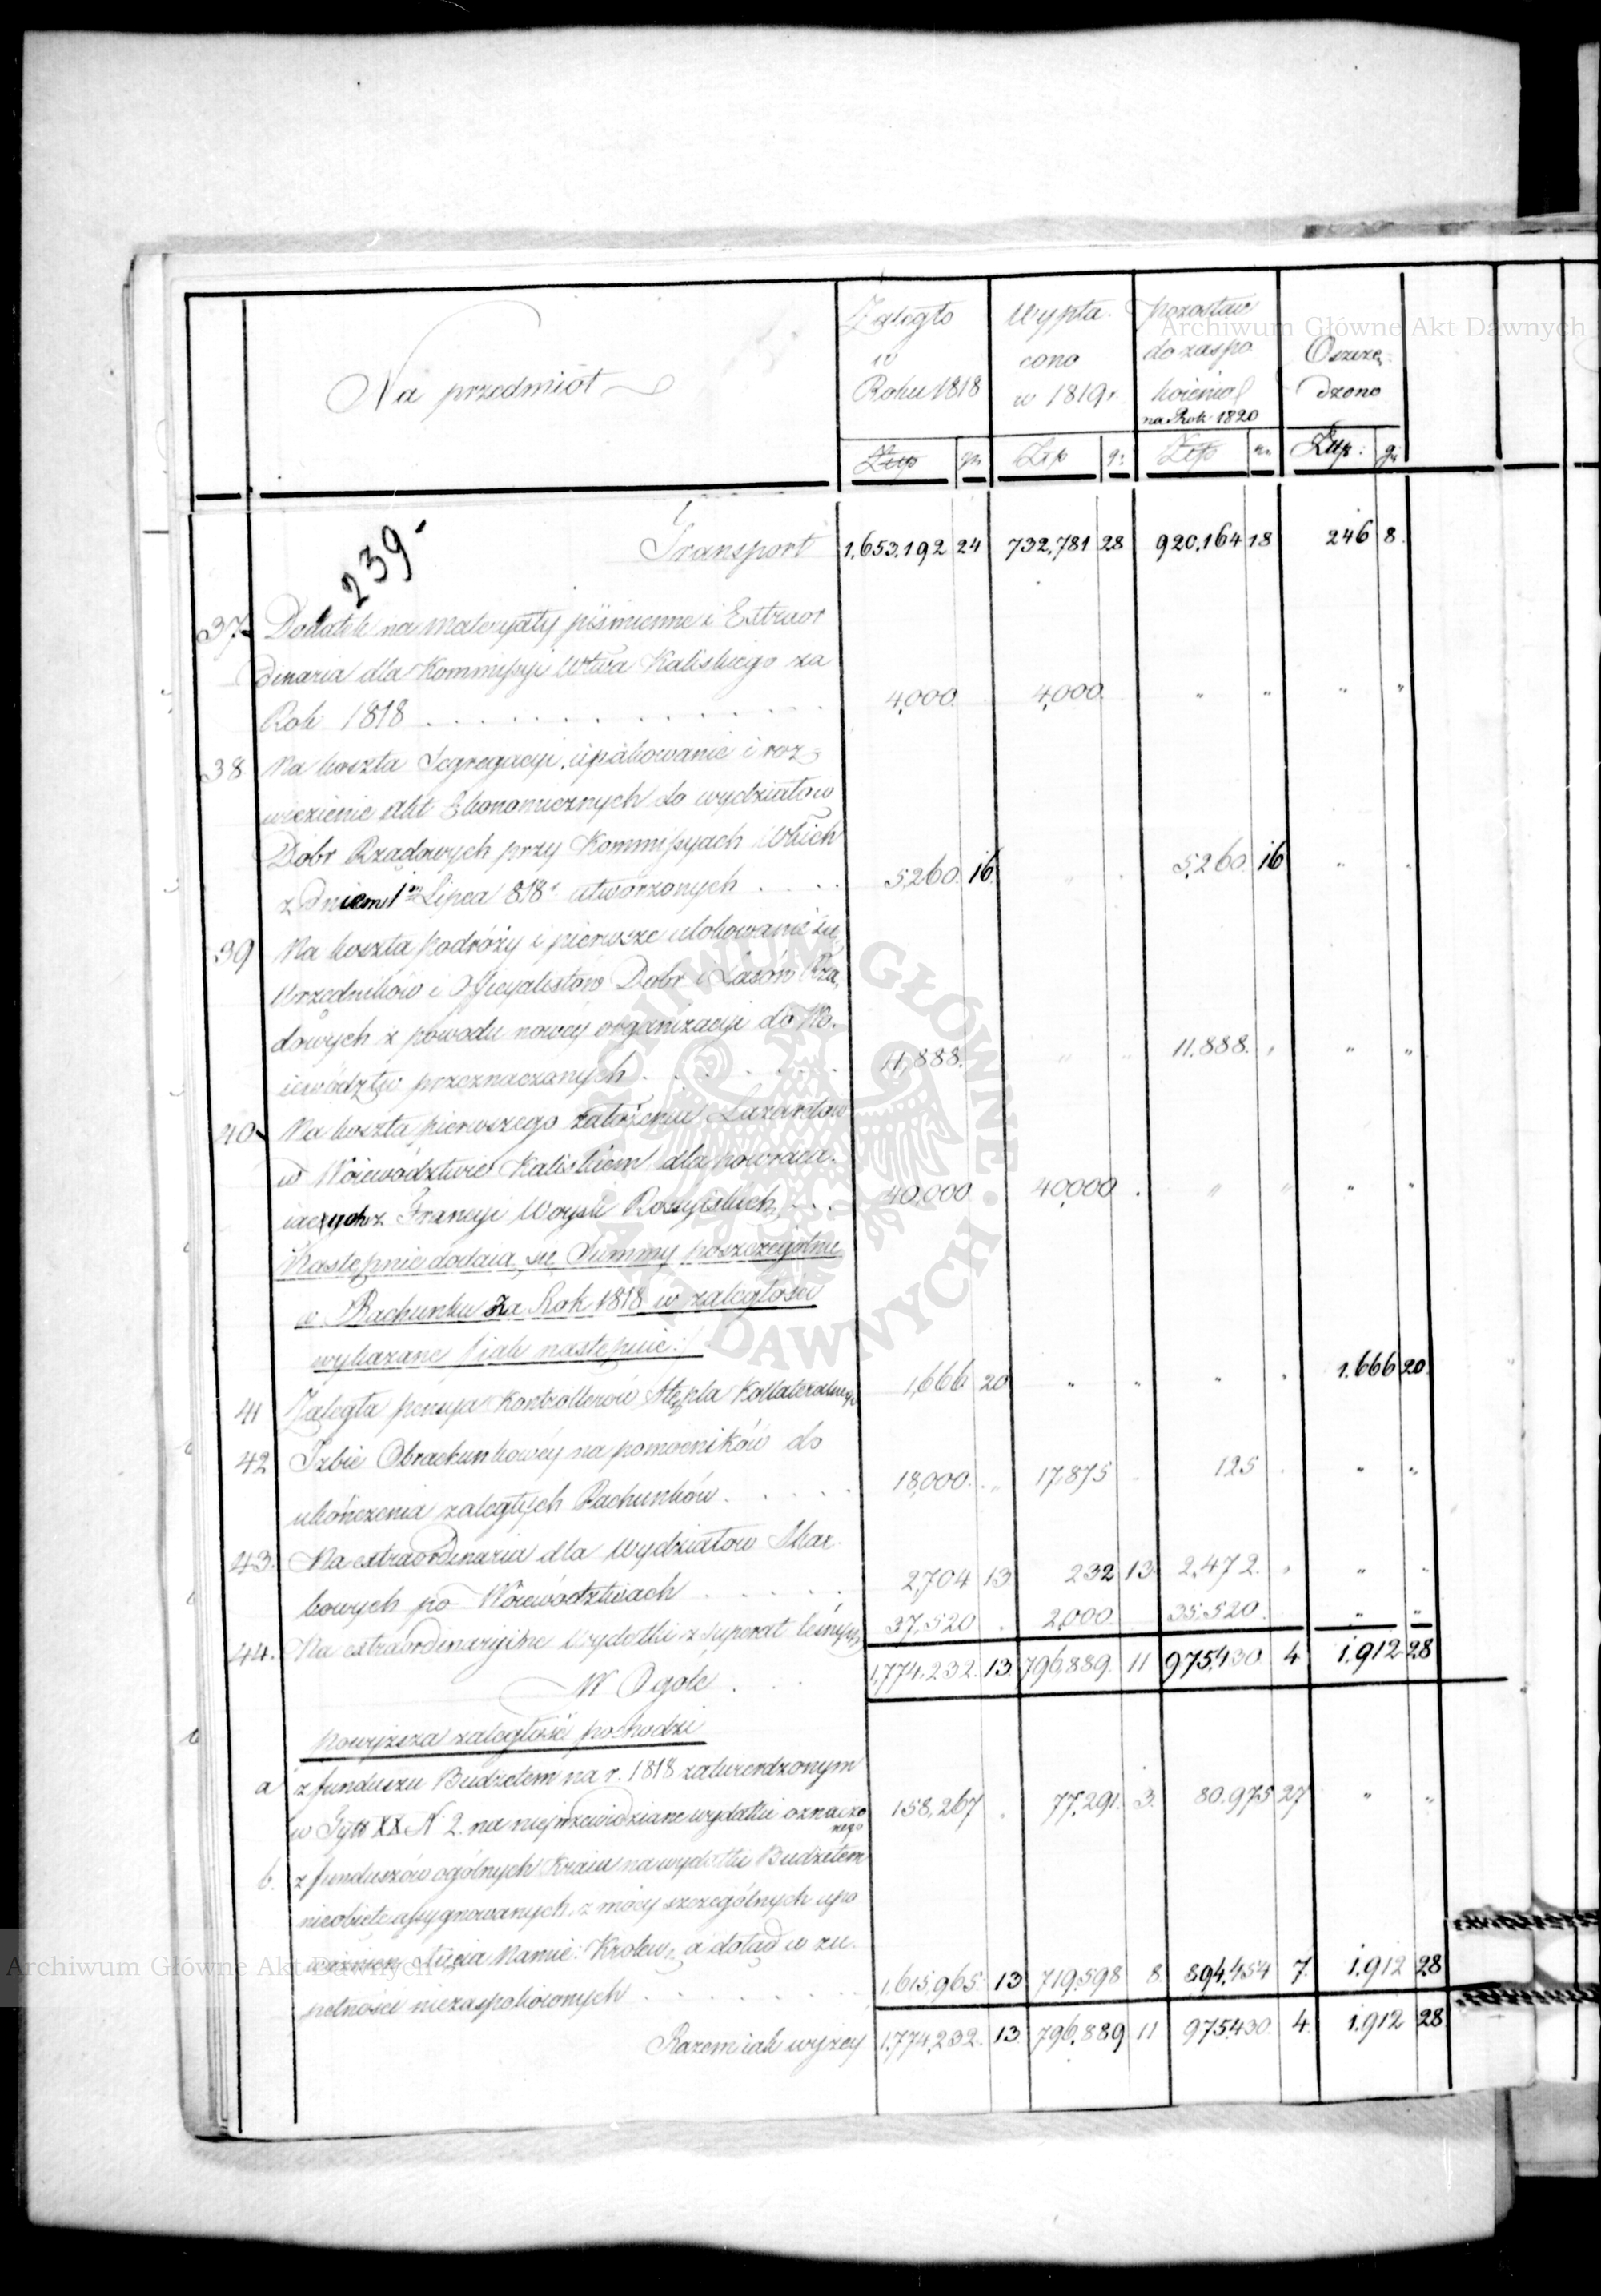 Na przedmiot
Zaległo w Roku 1818
Wypłacono w 1819 r.
Pozostaie do zaspokoienia na Rok 1820
Oszczędzono
Złtp gr Złp gr Złtp gr Złtp: gr
239.
Transport 1,653,192 24 732,781 28 920,164 18 246 8.
37. Dodatek na materyały piśmienne i Extraor
dinaria dla Kommissyi Wtwa Kaliskiego za
Rok 1818 . . . . 4,000. 4,000. " " " "
38 Na koszta Segregacyi, upakowanie i roz=
wiezienie Akt Ekonomicznych do wydziałów
Dobr Rządowych przy Kommissyach Wtkich
z Dniem 1m Lipca 818 r utworzonych . . . . 5,260. 16. " . 5,260. 16 " "
39 Na koszta podróży i pierwsze ulokowanie się
Urzędników i Officyalistów Dobr i Lasów Rzą,
dowych z powodu nowey organizacyi do Wo.
iewództw przeznaczonych . . . . 11,888. " " 11,888. " " "
40. Na koszta pierwszego założenia Lazaretów
w Woiewództwie Kaliskiem dla powraca.
iących z Francyi Woysk Rossyiskich . . . 40,000 40,000 . " " " "
Następnie dodaią się Summy poszczególnie
w Rachunku za Rok 1818 w zaległości
wykazane iak następuie:
41 Zaległa pensya Kontrollerów Stępla Kollateralnego 1,666 20 " " " " 1.666 20.
42 Izbie Obrachunkowéy na pomocników do
ukończenia zaległych Rachunków . . . . 18,000. " 17,875 125 " "
43. Na extraordinaria dla Wydziałow Skar
bowych po Woiewództwach . . . . 2,704 13. 232 13. 2,472. " " "
44. Na extraordinaryine Wydatki z Superat leśnych 37,520 . 2,000. 35,520. " "
W Ogóle . . . 1,774,232. 13. 796,889. 11 975,430 4 1.912 28
Powyższa zaległość pochodzi
a z funduszu Budżetem na r. 1818 zatwierdzonym
w Tytt XX N 2. na nieprzewidziane wydatki oznaczo
nego 158,267 . 77,291. 3. 80.975 27 " "
b. z funduszów ogólnych Kraiu na wydatki Budżetem
nieobięte assygnowanych, z mocy szczególnych upo
ważnień Xięcia Namie: Krolew: a dotąd w zu.
pełności niezaspokoionych . . . . 1,615,965. 13 719,598 8. 894,454 7. 1.912 28
Razem iak wyżey 1,774,232. 13. 796,889 11 975430. 4. 1.912 28.
Archiwum Główne Akt Dawnych
Archiwum Główne Akt Dawnych
ARCHIWUM GŁÓWNE AKT DAWNYCH